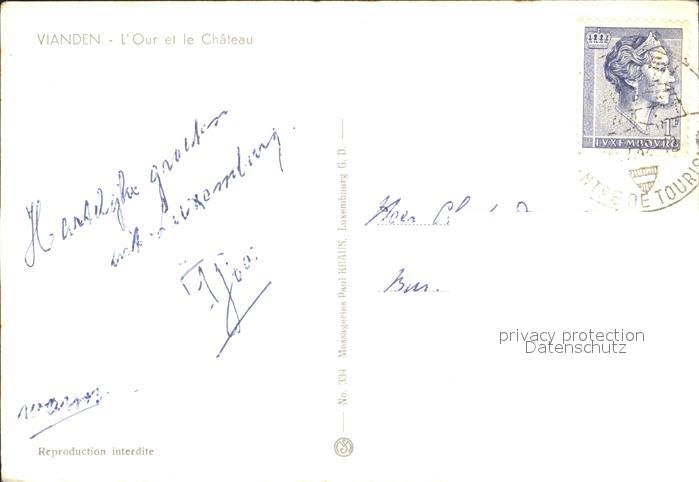 VIANDEN - L'Our et le Château
Hartelijke groeten
uit Luxemburg.
Reproduction interdite
No. 334 Messageries Paul KRAUS, Luxembourg G. D.
1F
LVXEMBOVRG
NTRE DE TOURIS
Heer
privacy protection
Datenschutz